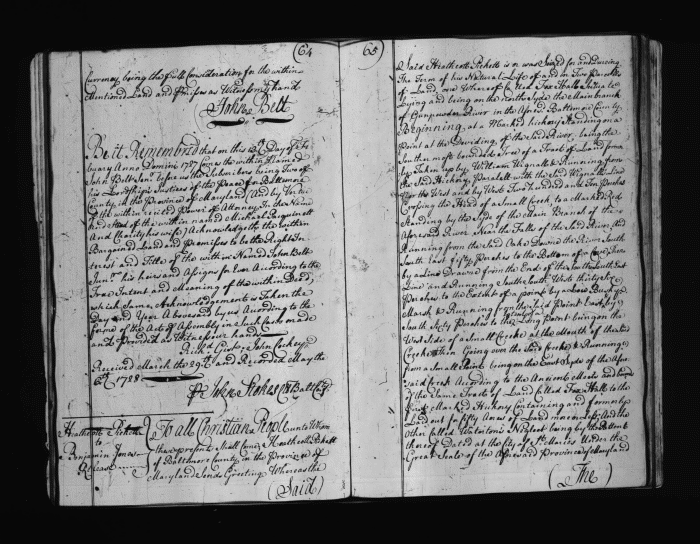 64
Currency being the full Consideration for the within
Mentioned Land and Premises as Witness my hand
John Belt
Be it Remembred that on this 13th Day of
Anno Domini 1727 Came the within Named
John Belt Junr before us the Subscribers being two of
his Lordships Justices of the Peace for Baltimore
County in the Province of Maryland (And by Virtue
of the within recited Power of Attorney In the Name
and Stead of the within named Michael
And Charity his wife) Acknowledged the within
Bargained Land and Premises to be the Right In
terest and Title of the within Named John Belt
Junr his heirs and Assigns for Ever According to the
True Intent and Meaning of the within Deed,
which Same Acknowledgement is Taken the
Day and Year Abovesaid by us According to the
form of the Act of Assembly in Such Case made
and Provided as Witness our hands
Richd Gist John Cockey
Received March the 29th and Recorded May the
6th 1728
P John Stokes Clk Balt Co
Heathcott Pickett
to
Benjamin Jones
Release
To all Christian People unto Whom
these presents Shall Come, Heathcott Pickett
of Baltimore County in the Province of
Maryland Sends Greeting Whereas the
(Said)
65
Said Heathcott Pickett is or was Seized for and During
The Term of his Natural Life of and in Two Parcels
of Land, one Whereof Called Fox Hall Situate
Lying and being on the the Main branch
of Gunpowder River in the Aforesd Baltimore County
Beginning at a Marked hickory Standing on a
Point at the Deviding of the Said River, being the
Southermost bounded Tree of a Tract of Land form
erly Taken up by William Wignall & Running from
the Said Hickory Paralell with the Said Wignalls Line
North West and by West Two hundred and Ten Perches
Crossing the Head of a Small Creek to a Marked Red
Standing by the Side of the Main Branch of the
Aforesaid River Near the Falls of the Said River And
Running from the Said Oake Downe the River South
South East fifty Perches to the Bottom of a Cove, Then
by a Line Drawne from the End of the South South East
Line and Running South South West thirty Six
Perches to the Eastest of a point by a
Marsh & Running from the Said Point East by
South Sixty Perches to the Long Point being on the
West Side of a Small Creeke at the Mouth of the
Creek Then Going over the Said Creek & Running
from a Small Point being on the East Side of the Afore
said Creek According to the Ancient Meets and
of the Same Tracts of Land Called Fox Hall to the
First Marked Hickory Containing and formerly
Laid out for fifty Acres of Land more or less And the
other Called Watertons Neglect being by the Pattent
thereof Dated at the City of St Maries Under the
Great Seale of the Aforesaid Province of Maryland
(The)